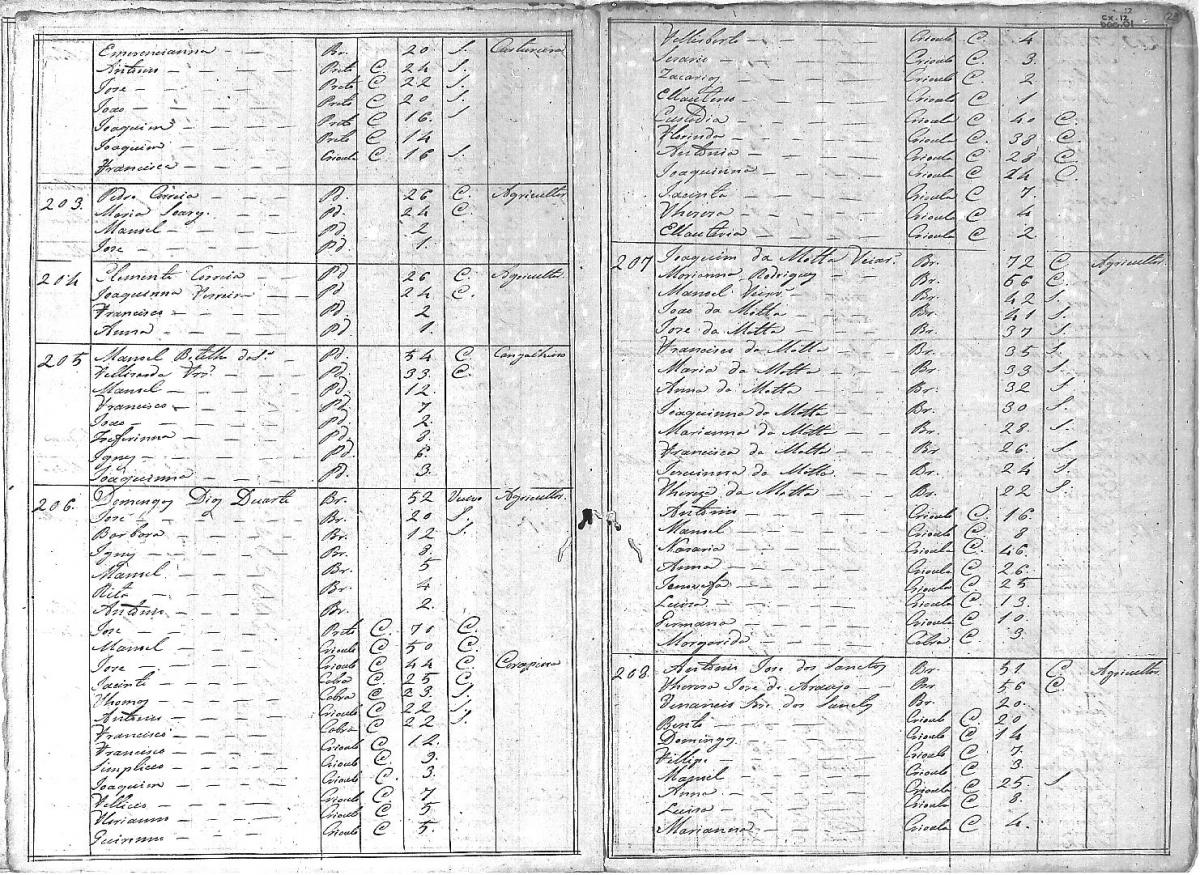 Emerencianna Br. 20 S. Custureira
Antonio Preto C. 24 S.
Jose Preto C. 22 S.
Joao Preto C. 20 S.
Joaquim Preto C. 16 S
Joaquim Preto C. 14
Francisca Crioula C. 16 S.
203. Pedro Correia Pd. 26 C. Agricultor
Maria Pd. 24 C.
Manoel Pd. 2
Jose Pd. 1.
204 Clemente Correia Pd 26 C. Agricultor
Joaquinna Ferreira Pd 24 C.
Francisco Pd 2
Anna Pd. 1.
205 Manoel Botelho Pd. 54 C. Cangalheiro
Pd. 33 C.
Manoel Pd. 12.
Francisco Pd. 7
Joao Pd. 2
Pd. 8
Igney Pd. 6
Joaquinna Pd. 3
206. Domingos Dias Duarte Br. 52 Viuvo Agricultor.
Jose Br. 20 S.
Barbora Br. 12 S.
Igney Br. 8.
Manoel Br. 5
Rita Br. 4
Antonio Br. 2.
Jose Preto C. 70 C
Manoel Crioulo C. 50 C.
Jose Crioulo C. 44 C Carapina
Jacinto Cabra C. 25 C
Thomas Cabra C. 23 S.
Antonio Crioulo C. 22 S.
Francisco Cabra C. 22 S.
Francisco Crioulo C. 12.
Simplicio Crioulo C. 9
Joaquim Crioulo C. 3.
Fellicio Crioulo C. 7
Crioulo C. 5
Guirinno Crioulo C. 5.
Cx. 12
DOC. 01
Felisberto Crioulo C. 4
Crioulo C. 3.
Zacarias Crioulo C. 2
Elauterio Crioulo C. 1
Custodia Crioula C. 40 C.
Florinda Crioula C. 38 C
Antonia Crioula C. 28 C.
Joaquinna Crioula C. 24 C.
Jacinta Crioula C. 7
Thereza Crioula C. 4
Elauteria Crioula C. 2
207 Joaquim da Motta Br. 72 C. Agricultor
Marianna Rodrigues Br. 66 C.
Manoel Br. 42 S.
Joao da Motta Br. 41 S.
Jose da Motta Br. 37 S.
Francisco da Motta Br. 35 S.
Maria da Motta Br. 33 S.
Anna da Motta Br. 32 S.
Joaquinna da Motta Br. 30 S.
Marianna da Motta Br. 28 S.
Francisca da Motta Br. 26 S.
da Motta Br. 24 S.
Thereza da Motta Br. 22 S.
Antonio Crioulo C. 16.
Manoel Crioulo C. 8
Crioula C. 46.
Anna Crioula C. 26.
Crioula C 25
Luiza Crioula C. 13.
Germana Crioula C. 10
Margarida Cabra C. 3
208. Antonio Jose dos Sanctos Br. 51 C. Agricultor
Thereza Jose de Araujo Br 56 C
Venancio dos Sanctos Br 20.
Bento Crioulo C. 20
Domingos Crioulo C. 14
Fillipe Crioulo C. 7.
Manoel Crioulo C 3.
Anna Crioula C. 25 S
Luiza Crioula C 8.
Marianna Crioula C 4.